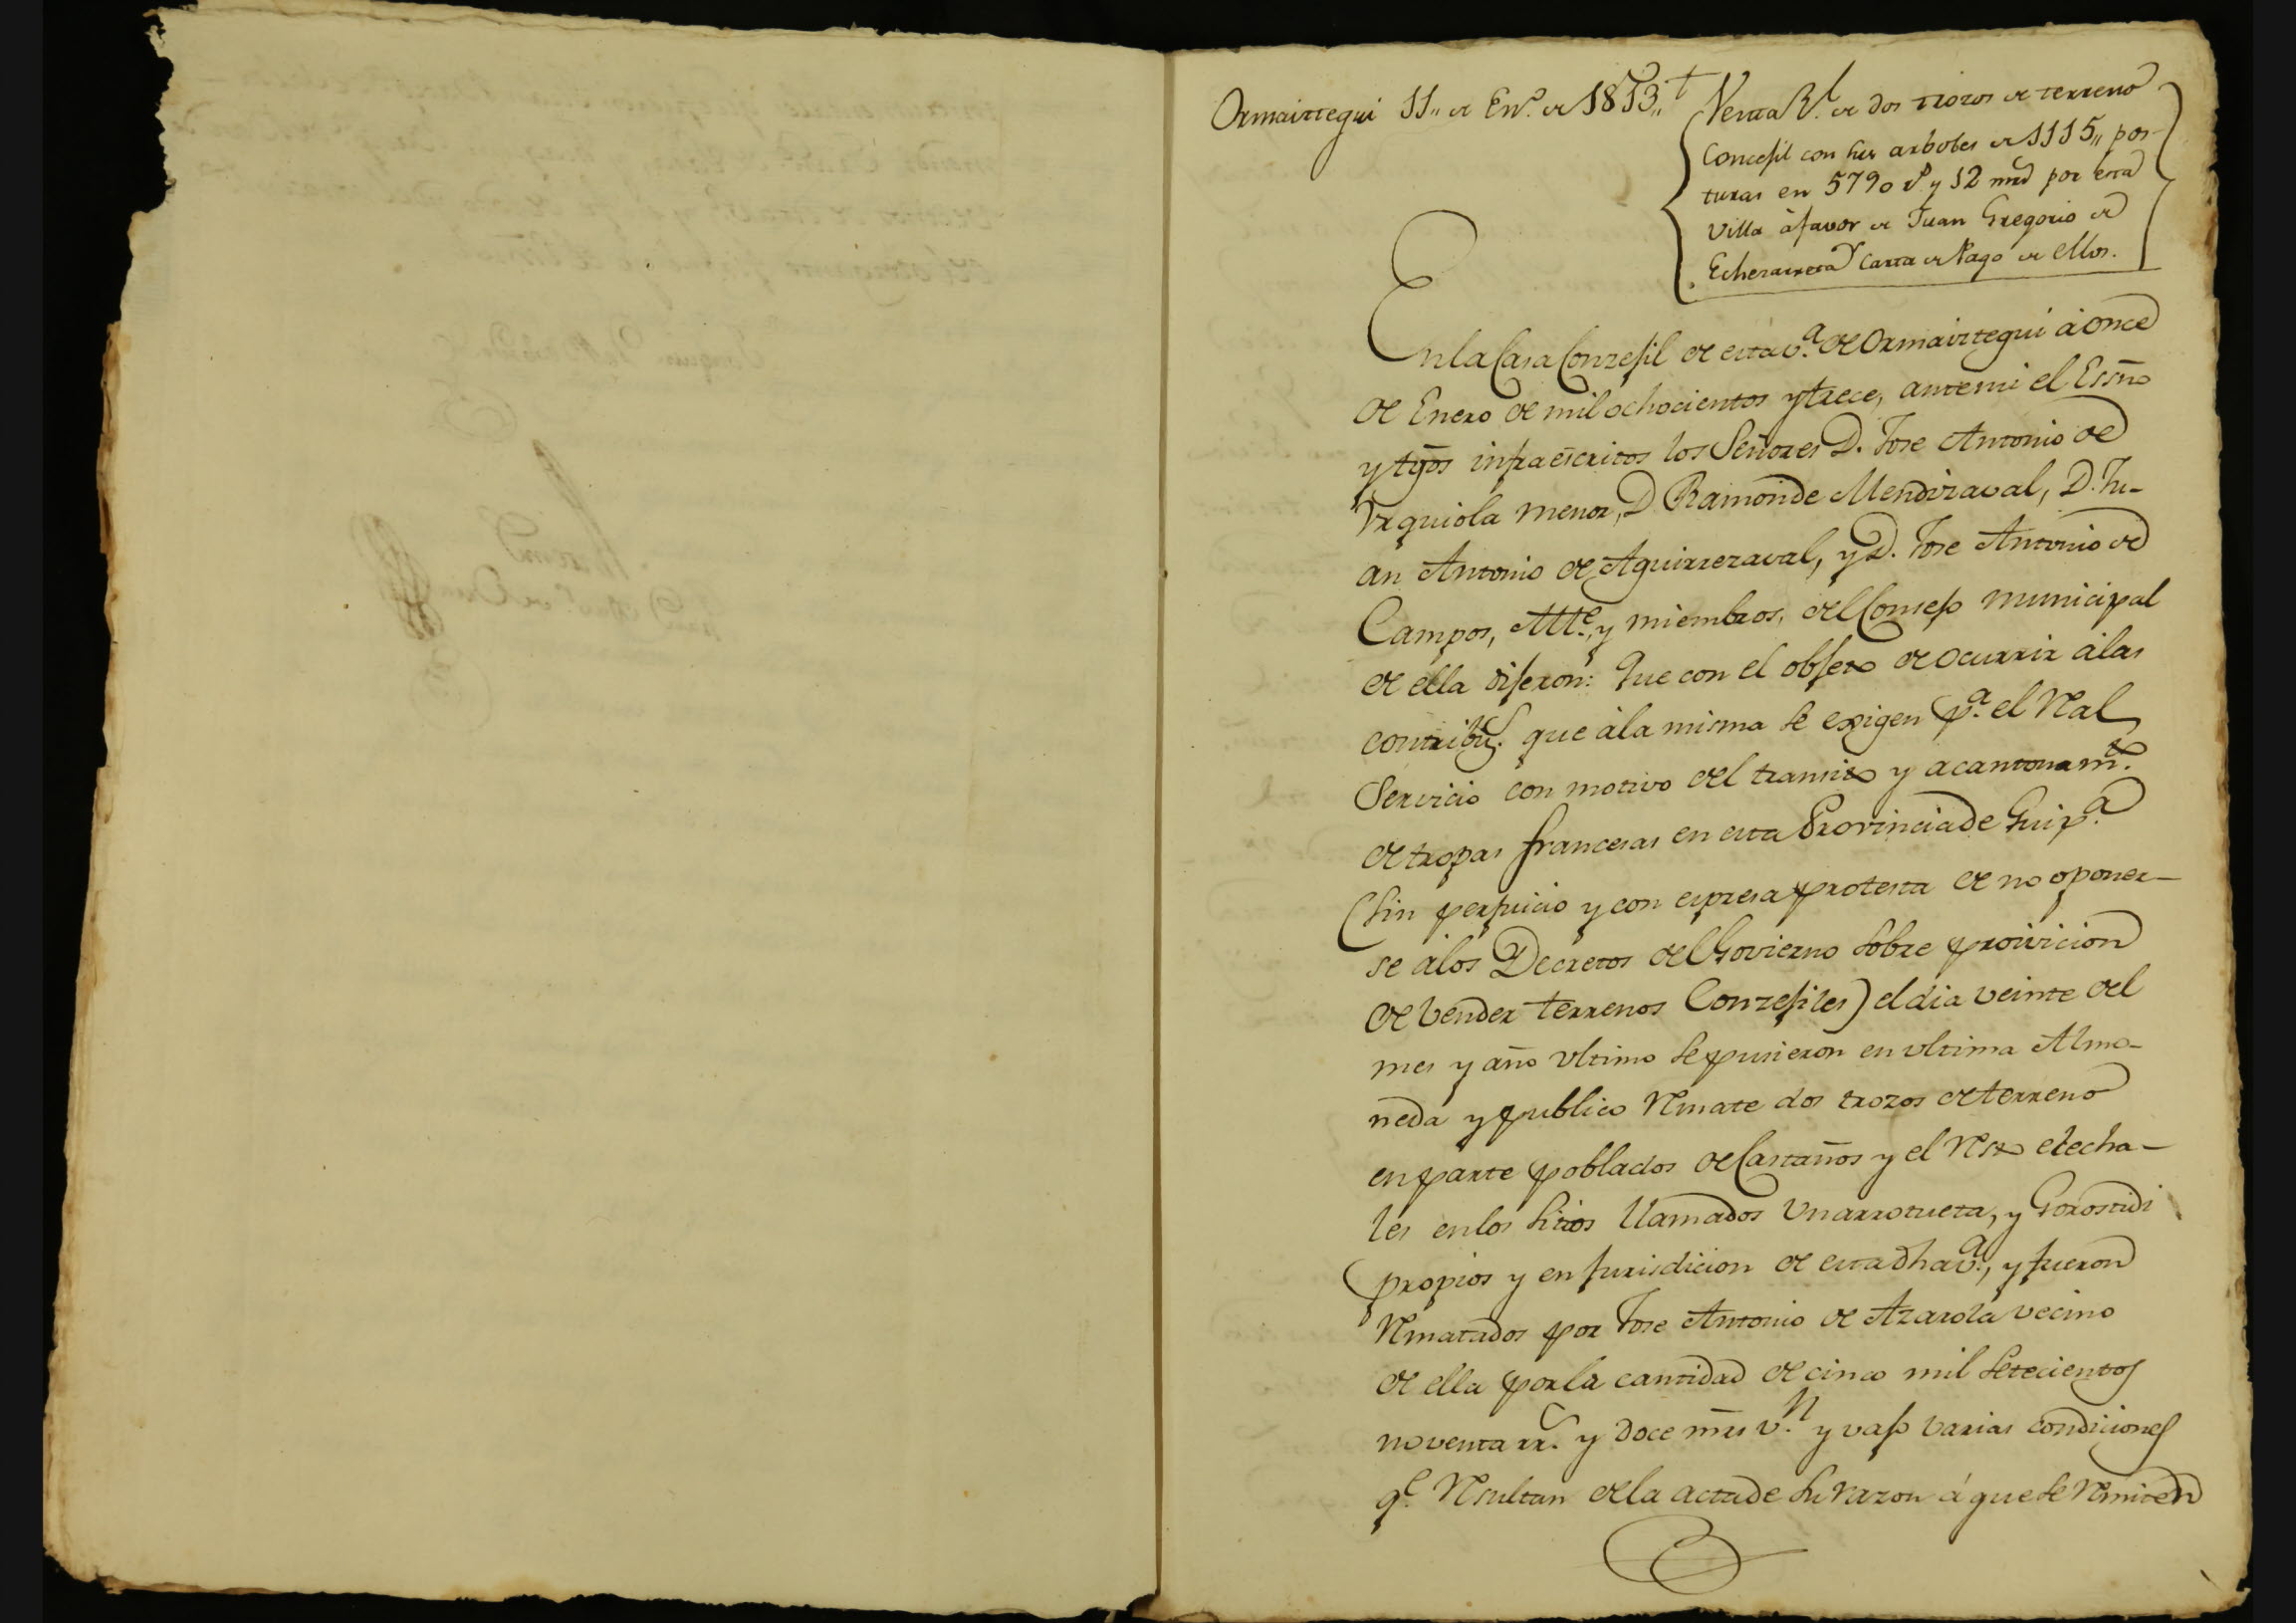 Ormaiztegui 11,, de En.º de 1813,, †
Venta R.l de dos trozos de terreno
Concejil con sus arboles de 1115,, pos-
turas en 5790 rs y 12 mrs por esta
Villa à favor de Juan Gregorio de
Echezarreta Carta de Pago de ellos.
En la Casa Conzejil de esta v.ª de Ormaiztegui à once
de Enero de mil ochocientos y trece, ante mi el Essño
y tgõs infraescritos los Señores D. Jose Antonio de
Urquiola menor, D Ramon de Mendizaval, D. Ju-
an Antonio de Aguirrezaval, y D. Jose Antonio de
Campos, Alle, y miembros, del Consejo municipal
de ella dijeron: Que con el objeto de ocurrir à las
contribu.s que à la misma se exigen p.ª el Real
Servicio con motivo del transito y acantonam.to
de tropas francesas en esta Provincia de Guip.ª
(sin perjuicio y con espresa protesta de no oponer-
se à los Decretos del Govierno sobre proivicion
de vender terrenos Conzejiles) el dia veinte del
mes y año ultimo se pusieron en ultima Almo-
neda y publico Remate dos trozos de terreno
en parte poblados de Castaños y el Resto de echa-
les en los sitios llamados Unarrotueta, y Gorostidi
propios y en jurisdicion de esta dha v.ª, y fueron
Rematados por Jose Antonio de Azarola vecino
de ella por la cantidad de cinco mil setecientos
noventa rr.s y doce mrs v.n y vajo varias condiciones
q.e Resultan de la acta de su razon á que se Remiten